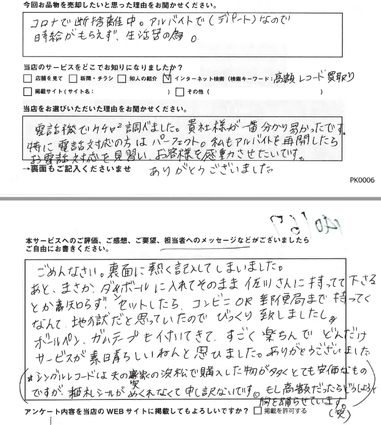 今回お品物を売却したいと思った理由をお聞かせください。
コロナで断捨離中。アルバイトで(デパート)なので
時給がもらえず、生活苦の為。
当店のサービスをどこでお知りになりましたか?
店舗を見て 新聞・チラシ 知人の紹介 インターネット検索 (検索キーワード:高額レコード買取り)
掲載サイト(サイト名: ) その他( )
当店をお選びいただいた理由をお聞かせください。
電話後でクチャ²調べました。貴社様が一番分かり易かったです。
特に電話対応の方はパーフェクト。私もアルバイトを再開したら
お電話対応を見習い、お客様を感動させたいです。
→裏面もご記入くださいませ ありがとうございました
PK0006
本サービスへのご評価、ご感想、ご要望、担当者へのメッセージなどがございましたら
ご自由にお書きください。
ごめんなさい。裏面に熱く記入してしまいました。
あと、まさか、ダンボールに入れてそのまま佐川さんに持って下さる
とか露知らず、セットしたら、コンビニOR郵便局まで持ってく
なんて、地の試だと思っていたのでびっくり致しました。
ボールペン、ガムテープも付いてきて、すごく楽ちんで どんだけ
サービスが素日晴らしいねんと思ひました。ありがとうございました
*シングルレコードは夫の実家の浜松で購入した物が多くとても安価なもの
ですが、値札シールがめくれなくて申し訳ないです。もし高額だったらどうしようと
胸を踊らせています。(笑)
アンケート内容を当店のWEBサイトに掲載してもよろしいですか? 掲載を許可する